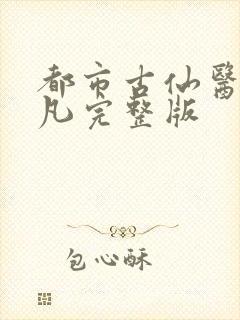 都市古仙醫
凡完整版
包心酥